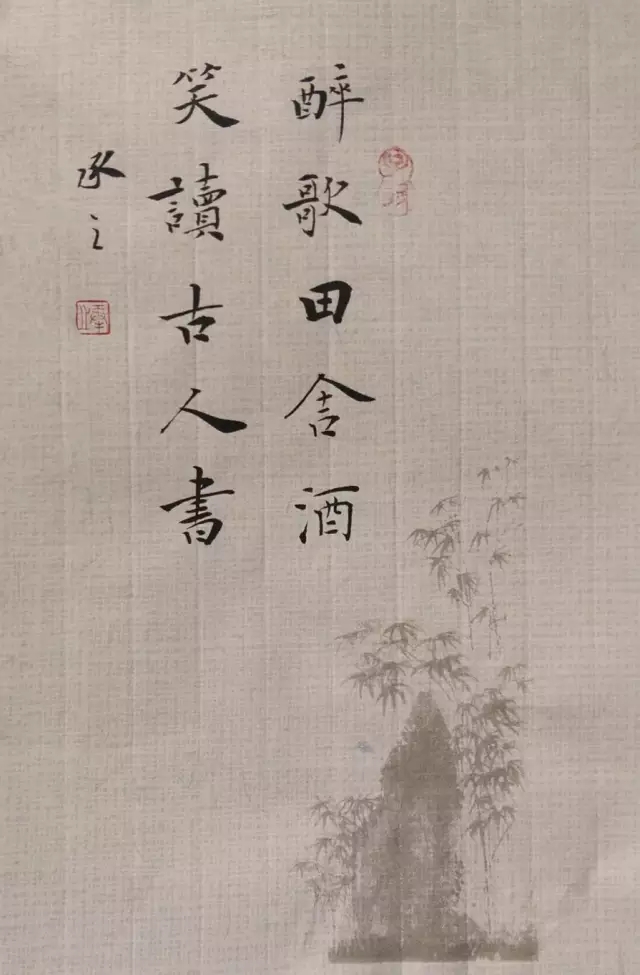 醉歌田舍酒
笑讀古人書
承之